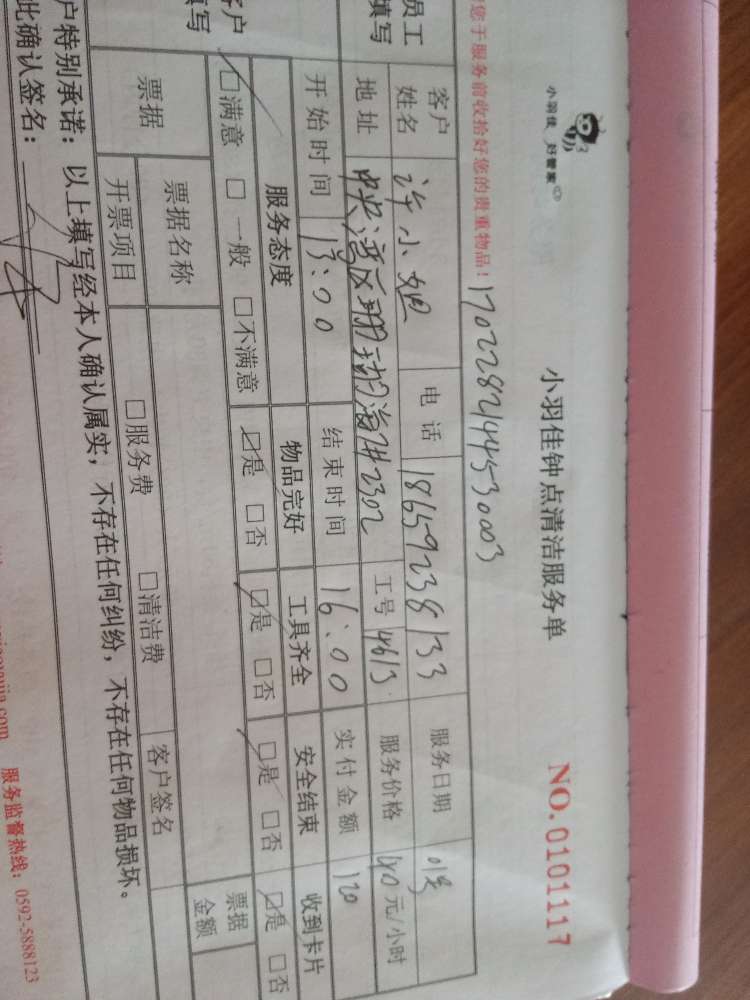 小羽佳 好管家
小羽佳钟点清洁服务单
NO. 0101117
您于服务前收拾好您的贵重物品！
1702282144530003
员工
填写
客户
姓名
许小姐
电话
18659238133
服务日期
地址
中央湾区珊瑚海
2302
工号
14613
服务价格
40元/小时
开始时间
13:00
结束时间
16:00
实付金额
120
客户
填写
服务态度
物品完好
工具齐全
安全结束
收到卡片
☑满意 □一般 □不满意
☑是 □否
☑是 □否
☑是 □否
☑是 □否
票据
票据名称
票据
金额
开票项目
□服务费
□清洁费
客户签名
户特别承诺：以上填写经本人确认属实，不存在任何纠纷，不存在任何物品损坏。
此确认签名：
服务监督热线：0592-5888123